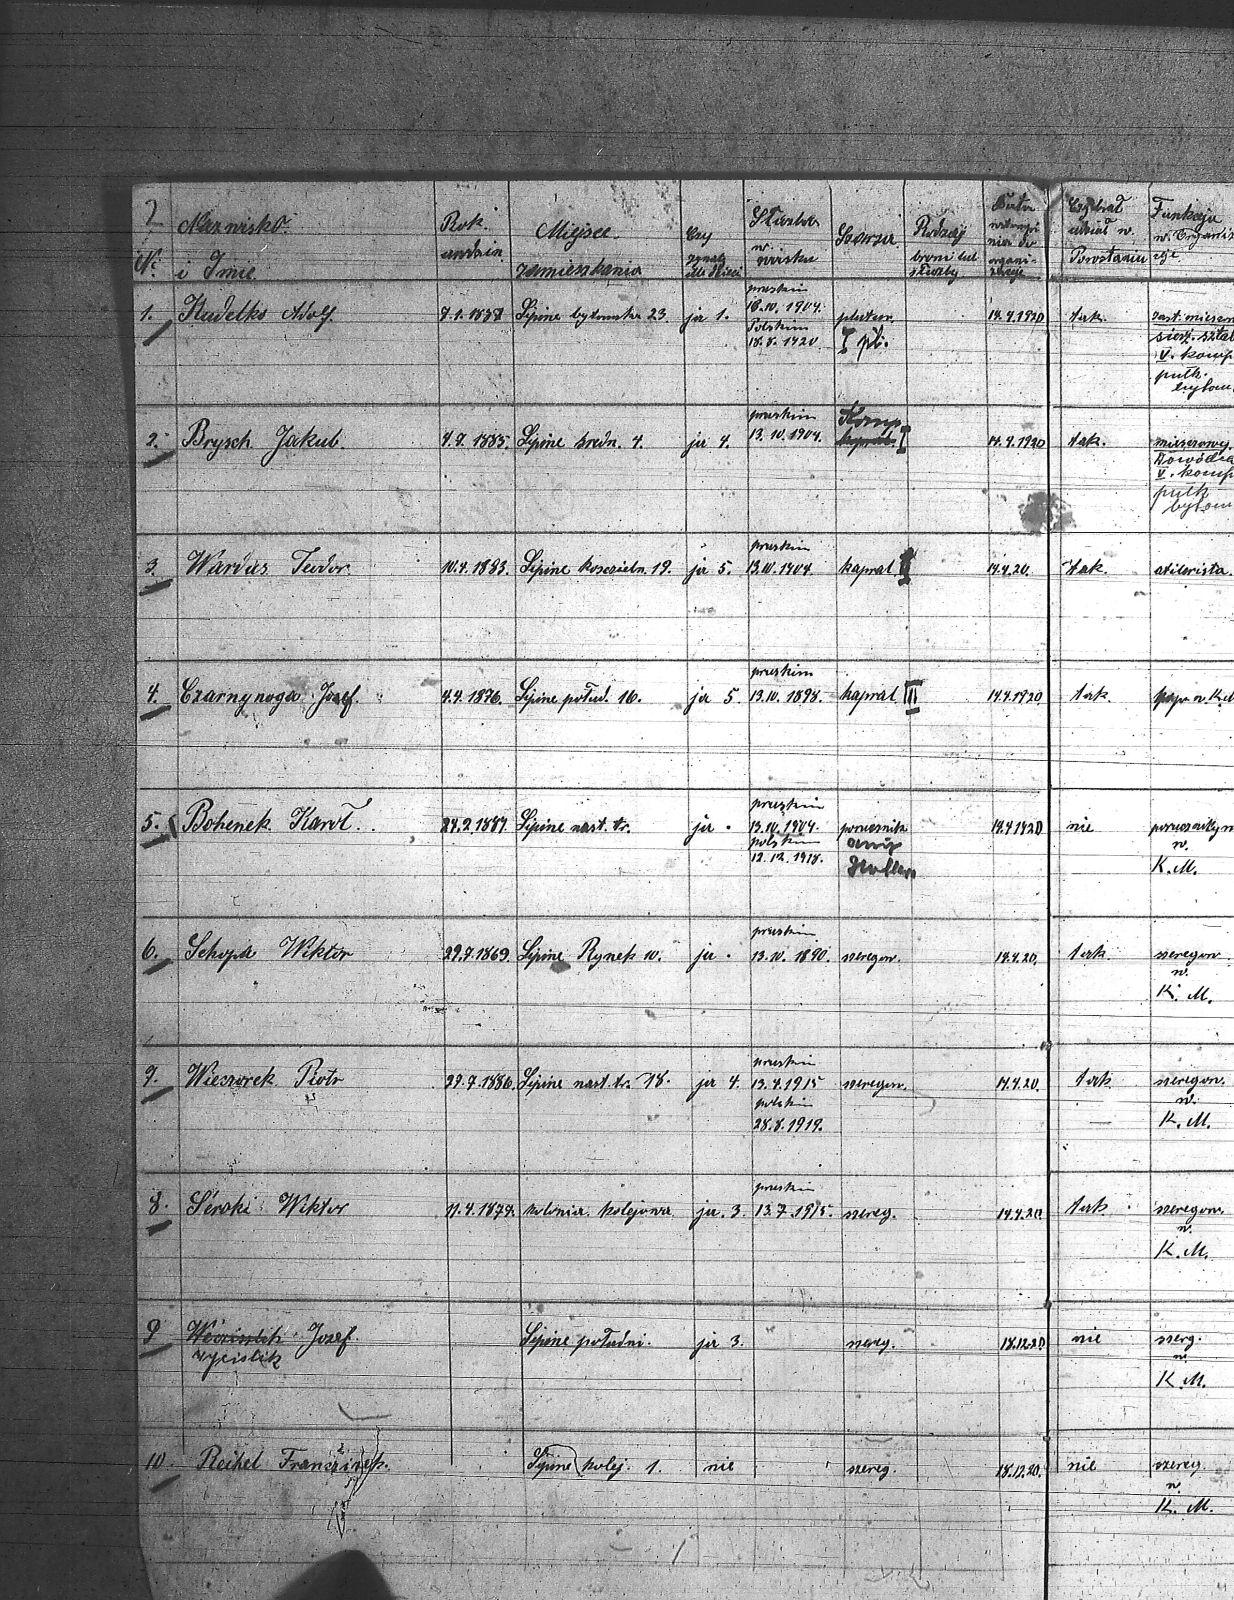 Nazwisko Rok Miejsce Czy Służba Szarza Rodzaj Czy brał Funkcja
w. udział w.
№ i Imie zamieszkania wojsku broni lub służby Powstaniu
pruskim
1. Kudelko Adolf 7.1.1887 Lipine bytomska 23 ja 1. 16.10.1904. pluton. 14.4.1920 tak. zast. miesc.
Polskim
18.8.1920 I pl.
V. komp
pułk.
bytom.
pruskim Komp
2. Brysch Jakub 4.7.1885. Lipine średn. 4. ja 4. 13.10.1904. I 14.4.1920 tak. miescowy
Dowódca
V. komp
pułk
bytom
pruskim
3. Wardas Teodor 10.4.1883. Lipine kościeln. 19. ja 5. 13.10.1904 kapral II 14.4.20. tak.
pruskim
4. Czarnynoga Josef. 4.4.1876. Lipine połud. 16. ja 5. 13.10.1898. kapral III 14.4.1920 tak. w. K.M
pruskim
5. Bohenek Karol. 24.2.1884. Lipine nast. tr. ja . 13.10.1904. porucznik 14.4.1920 nie
polskim armji w.
12.12.1918. Hallera K.M.
pruskim
6. Schopa Wiktor 29.7.1869. Lipine Rynek 10. ja . 13.10.1890. szeregow. 14.4.20. tak. szeregow.
w.
K.M.
pruskim
7. Wieczorek Piotr 29.7.1886. Lipine nast. tr. 18. ja 4. 13.4.1915 szeregow. 14.4.20. tak szeregow.
polskim w.
28.8.1919. K.M.
pruskim
8. Seroki Wiktor 11.4.1874. kolonia kolejowa ja. 3. 13.7.1915. szereg. 14.4.20 tak. szeregow.
w.
K.M.
9 Wecisslik Josef Lipine południ. ja 3. szereg. 18.12.20 nie szerg.
wycislik w.
K.M.
10. Reihel Franciszek. Lipine kolej. 1. nie szereg. 18.12.20. nie szereg.
w.
K.M.